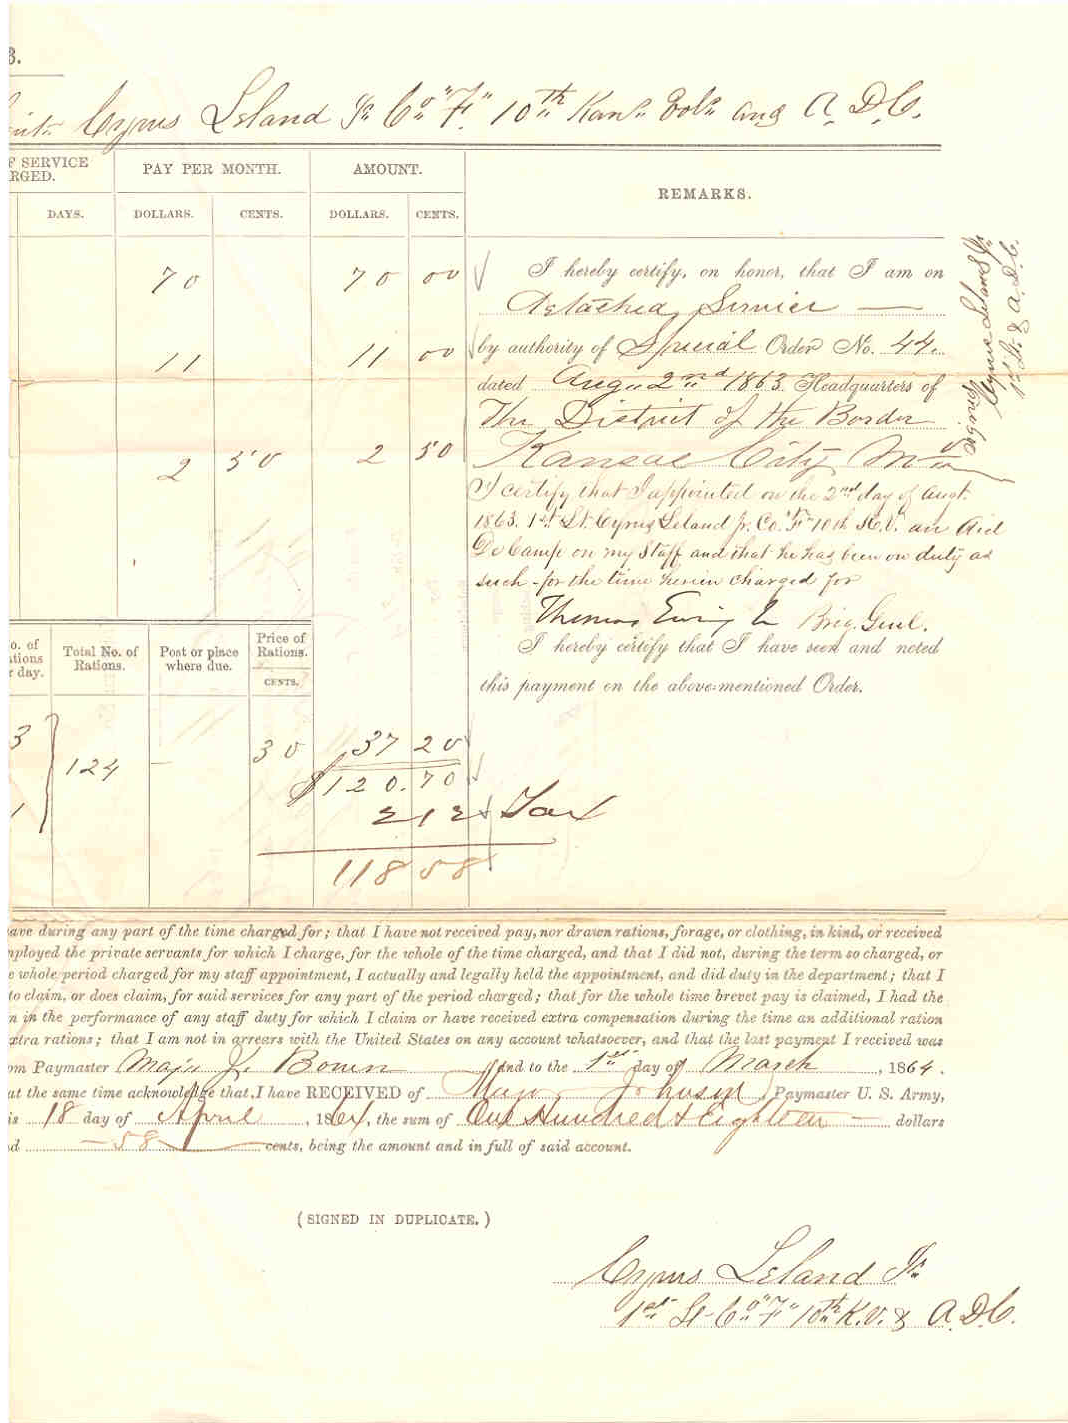 B.
Cyrus Leland Jr. Co "F" 10th Kans Vols and A. D. C.
F SERVICE
RGED.
PAY PER MONTH.
AMOUNT.
REMARKS.
DAYS.
DOLLARS.
CENTS.
DOLLARS.
CENTS.
70 70 00
11 11 00
2 50 2 50
I hereby certify, on honor, that I am on
Detached Service
by authority of Special Order No. 44.
dated Aug. 2nd 1863 Headquarters of
The District of the Border
Kansas City Mo
Signed
Cyrus Leland Jr.
1st Lt & A.D.C.
I certify that I appointed on the 2nd day of Augt.
1863. 1st Lt. Cyrus Leland Jr. Co. "F" 10th K.V. an Aid
De Camp on my Staff and that he has been on duty as
such for the time herein charged for
Thomas Ewing Jr Brig. Genl.
I hereby certify that I have seen and noted
this payment on the above-mentioned Order.
o. of
ations
r day.
Total No. of
Rations.
Post or place
where due.
Price of
Rations.
CENTS.
3
1
124
30
37 20
$120.70
2 12 Tax
118 58
ave during any part of the time charged for; that I have not received pay, nor drawn rations, forage, or clothing, in kind, or received
mployed the private servants for which I charge, for the whole of the time charged, and that I did not, during the term so charged, or
e whole period charged for my staff appointment, I actually and legally held the appointment, and did duty in the department; that I
to claim, or does claim, for said services for any part of the period charged; that for the whole time brevet pay is claimed, I had the
n in the performance of any staff duty for which I claim or have received extra compensation during the time an additional ration
xtra rations; that I am not in arrears with the United States on any account whatsoever, and that the last payment I received was
om Paymaster Major and to the 1st day of March , 1864.
at the same time acknowledge that I have RECEIVED of Major Johnson Paymaster U. S. Army,
is 18 day of April , 1864, the sum of One Hundred & Eighteen dollars
d 58 cents, being the amount and in full of said account.
(SIGNED IN DUPLICATE.)
Cyrus Leland Jr.
1st Lt Co "F" 10th K.V. & A.D.C.